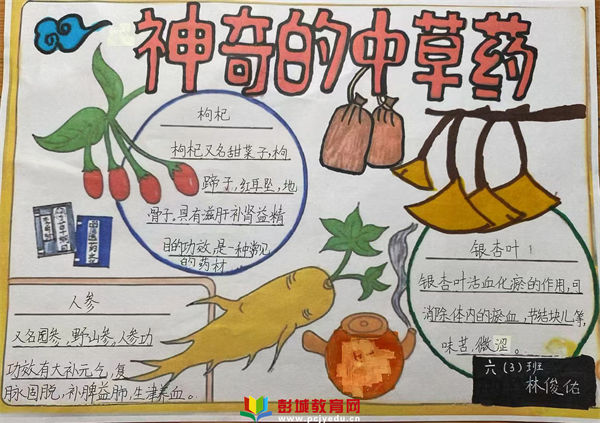 神奇的中草药
枸杞
枸杞又名甜菜子,枸
蹄子,红耳坠,地
骨子,具有滋肝补肾益精
目的功效,是一种常见
的药材
银杏叶!
银杏叶活血化瘀的作用,可
消除体内的瘀血,书结块儿等,
味苦,微涩。
人参
又名园参,野山参。人参功
功效有大补元气,复
脉固脱,补脾益肺,生津养血。
六(3)班
林俊佑
彭城教育网
www.pcjyedu.cn